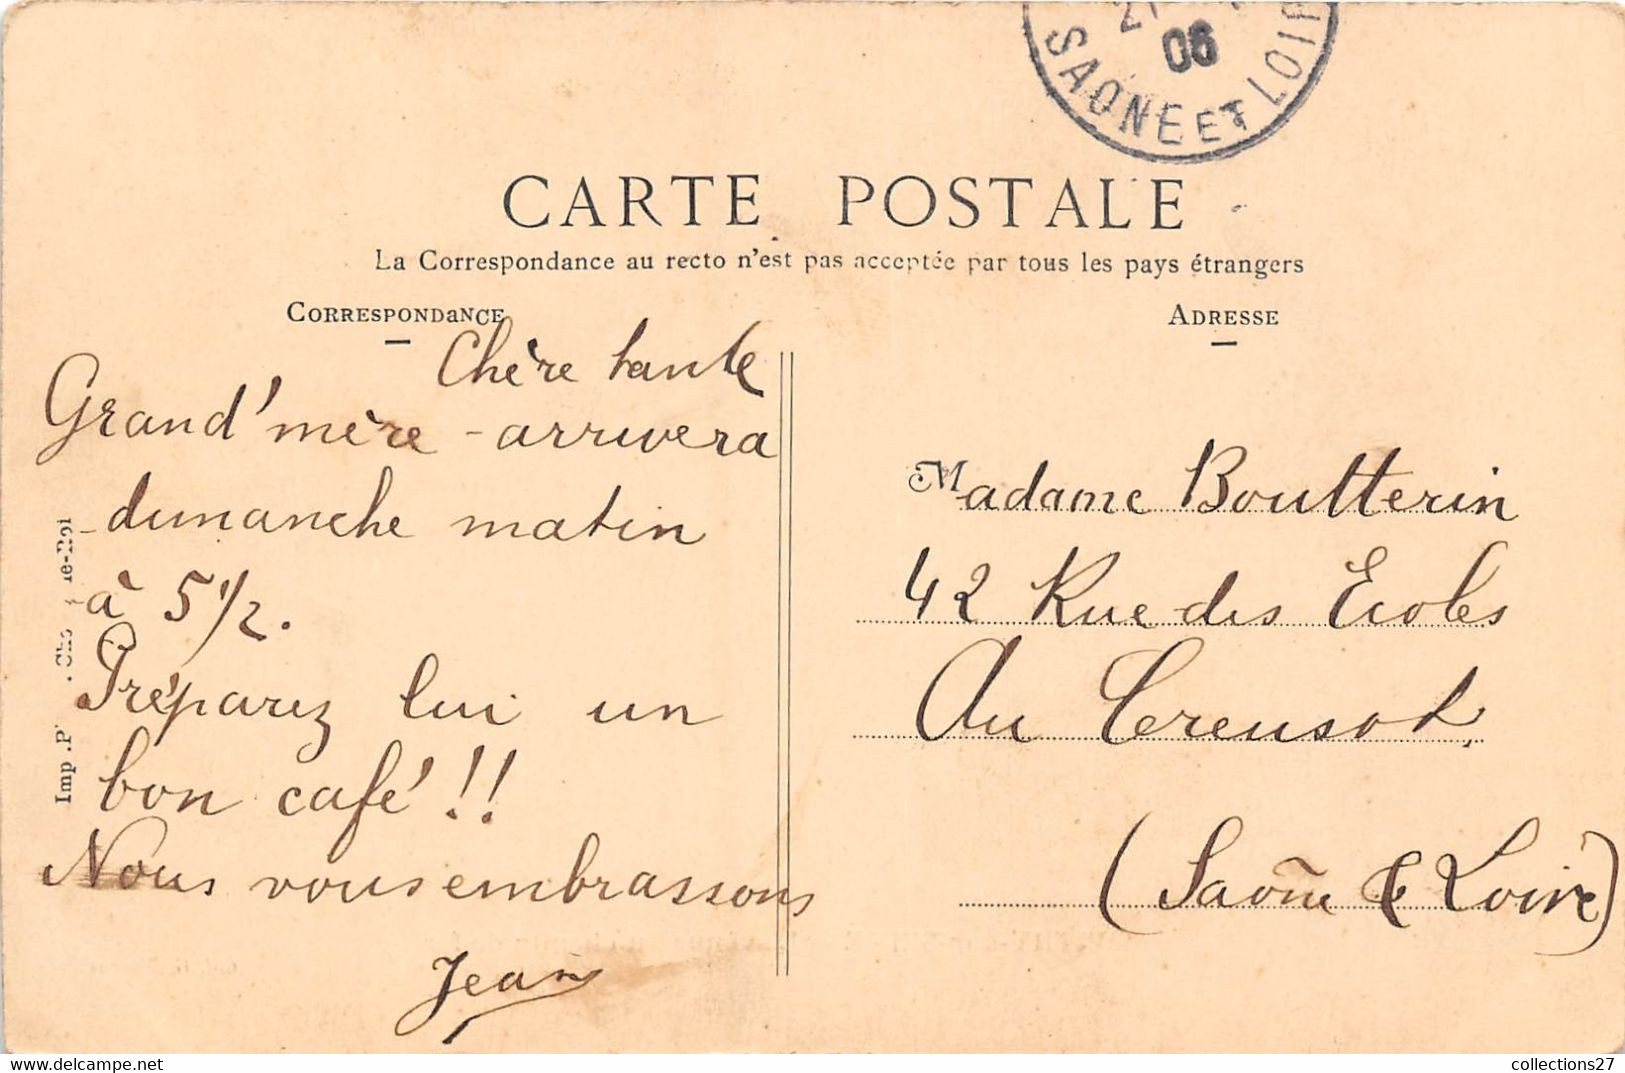 06
SAONE ET LOIR
CARTE POSTALE
La Correspondance au recto n'est pas acceptée par tous les pays étrangers
CORRESPONDANCE
ADRESSE
Chère tante
Grand'mère arrivera
dimanche matin
à 5 1/2.
Préparez lui un
bon café !!
Nous vous embrassons
Jean
Madame Boutterin
42 Rue des Ecoles
Au Creusot
(Saône & Loire)
Imp. P
collections27